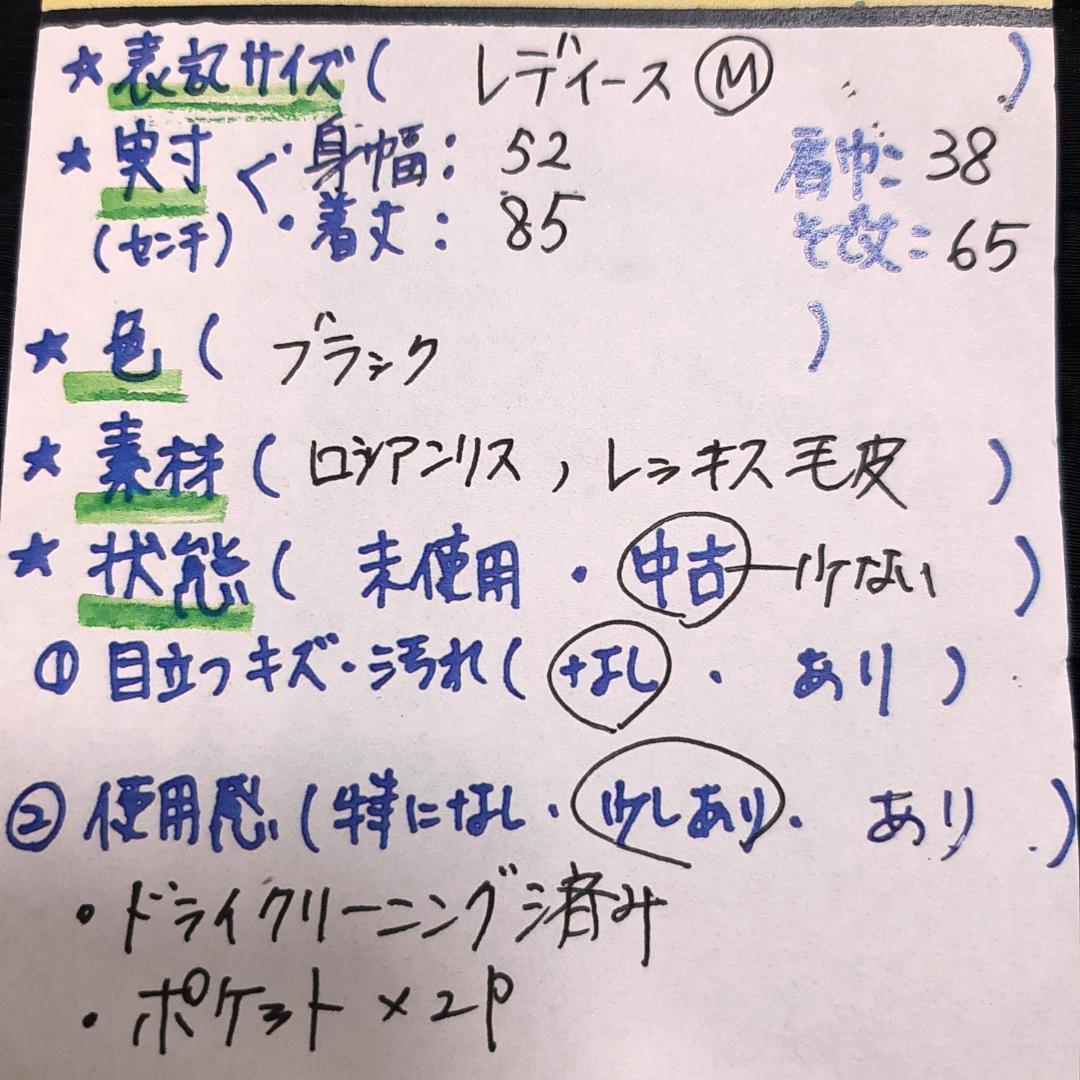 ★表記サイズ( レディース Ⓜ )
★実寸 く・身幅: 52 肩巾: 38
(センチ) ・着丈: 85 そで丈: 65
★色( ブラック )
★素材( ロシアンリス, レッキス毛皮 )
★状態( 未使用・中古ー少ない )
①目立つキズ・汚れ( なし・あり )
②使用感(特になし・少しあり・あり)
・ドライクリーニング済み
・ポケット×2P